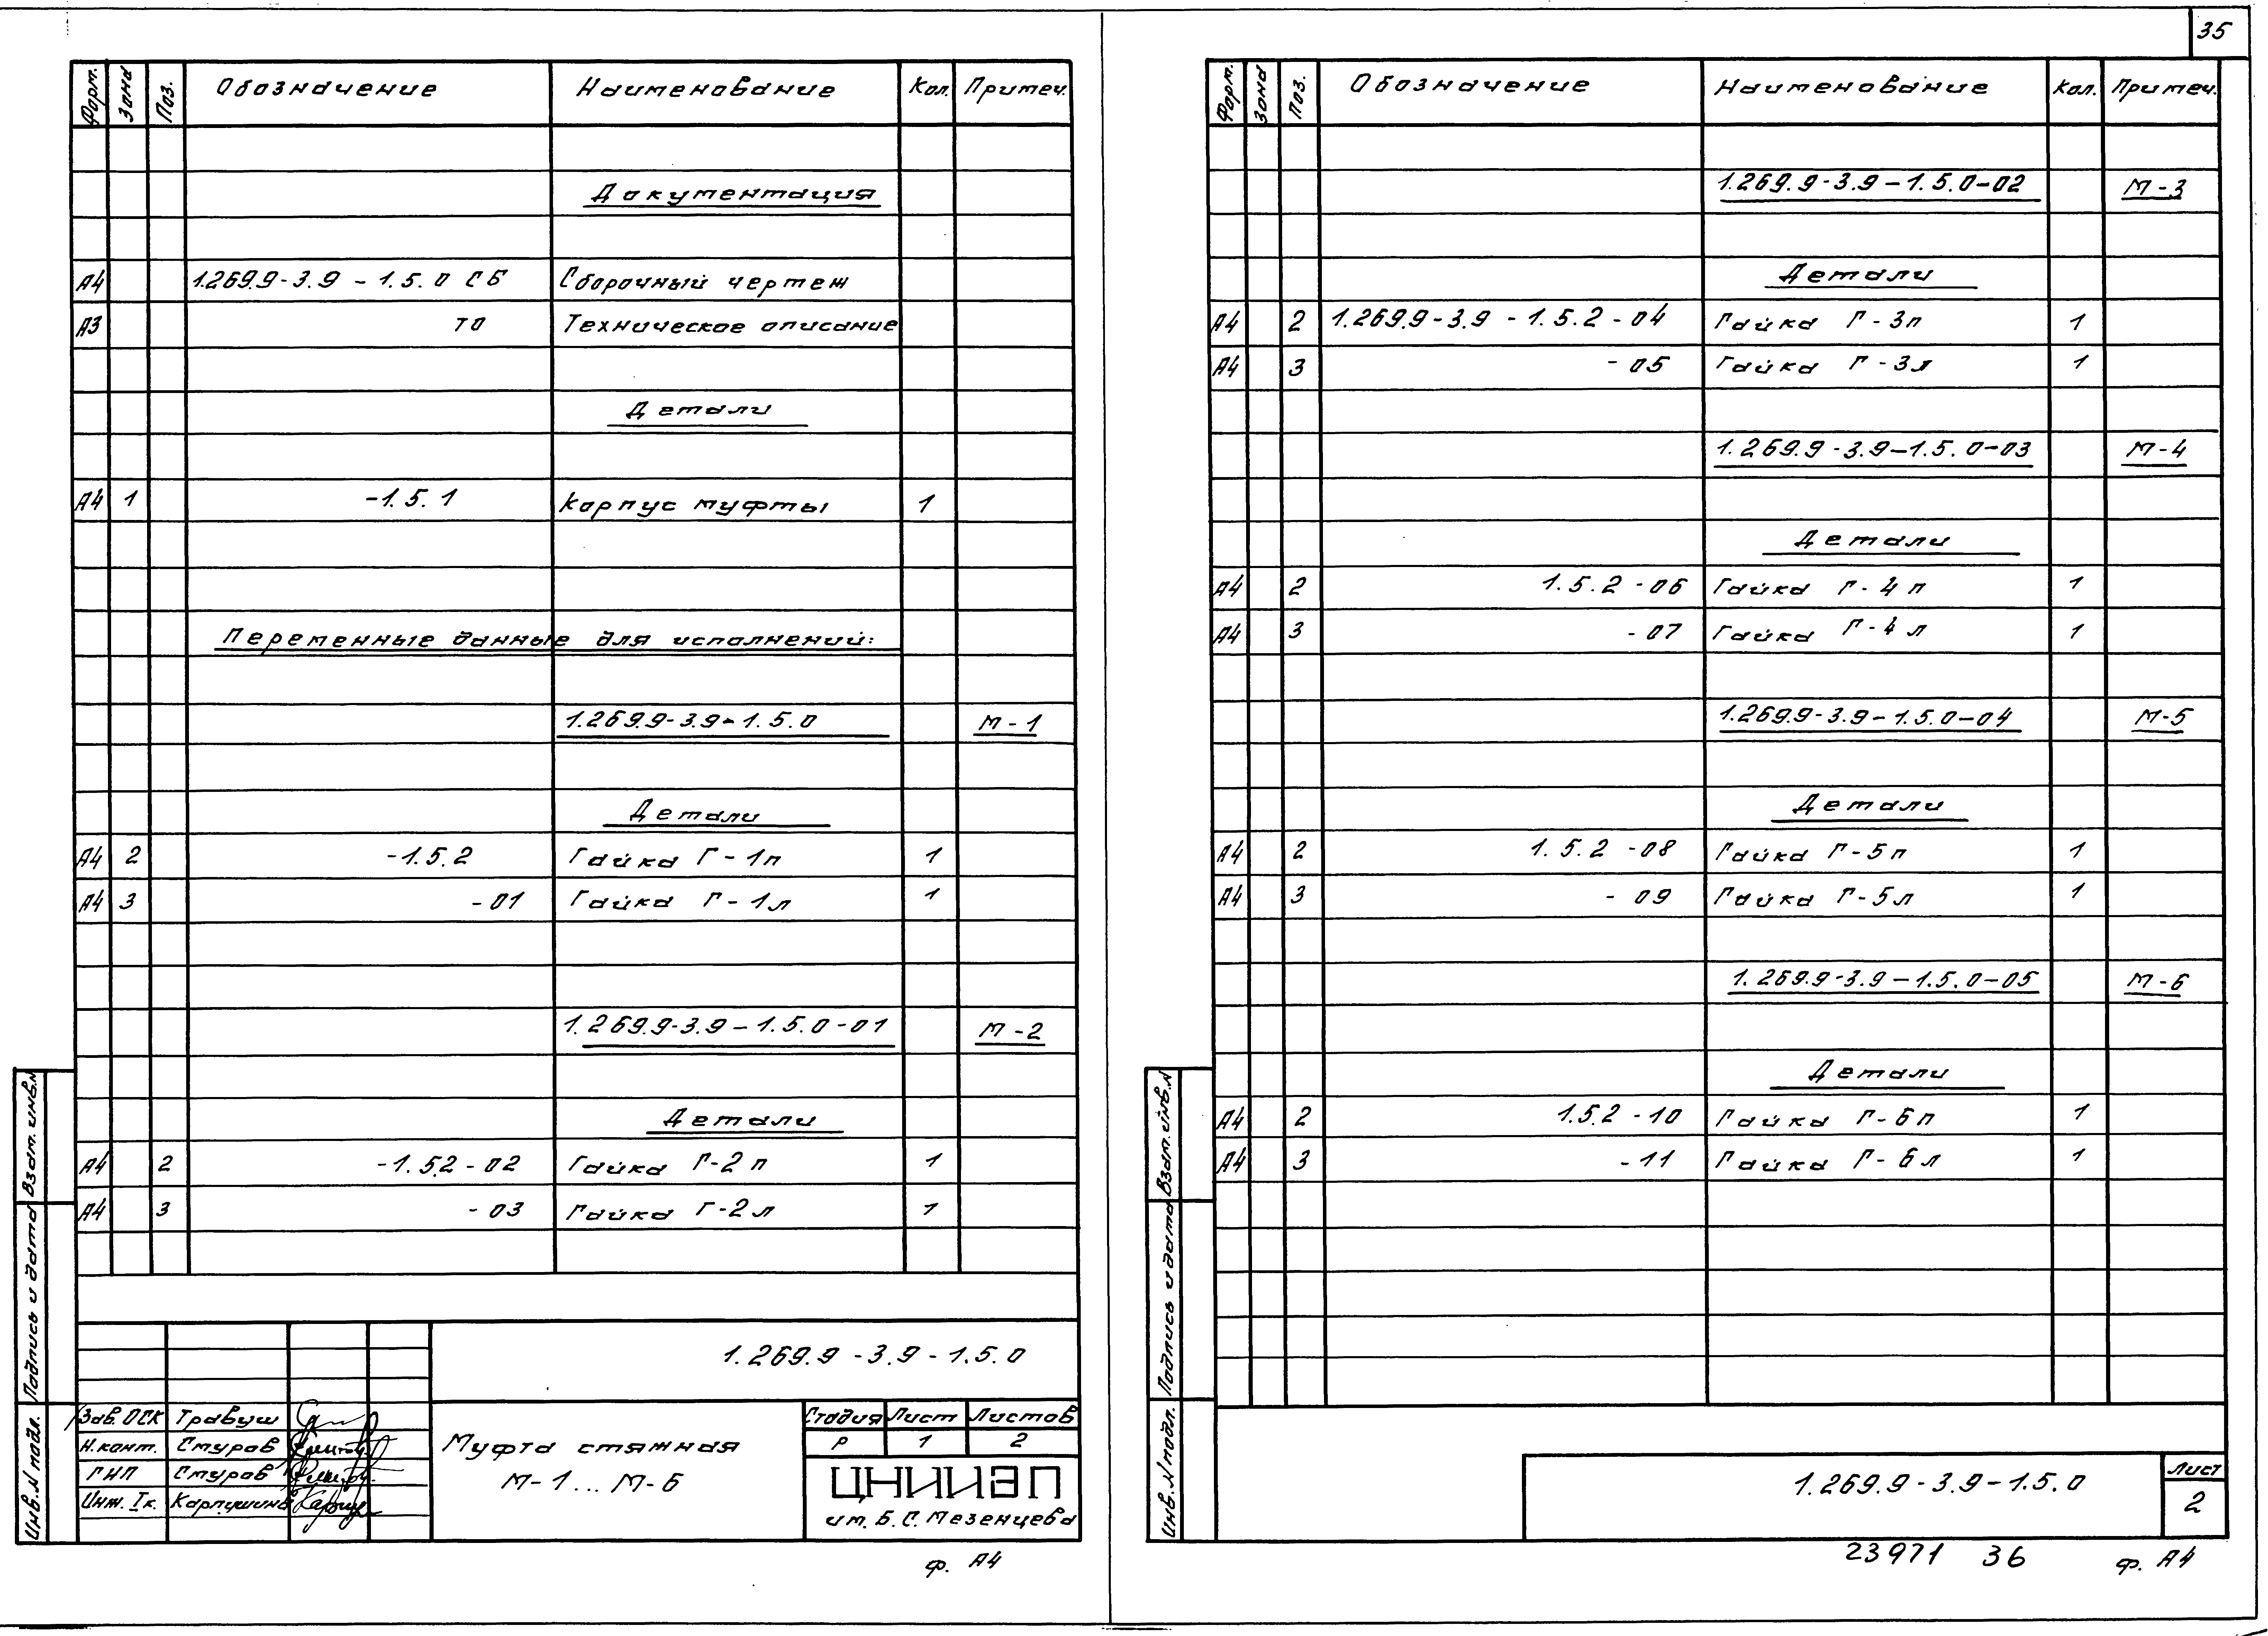 35
Форм. Зона Поз. Обозначение Наименование Кол. Примеч.
Документация
А4 1.269.9-3.9-1.5.0 СБ Сборочный чертеж
А3 ТО Техническое описание
Детали
А4 1 -1.5.1 Корпус муфты 1
Переменные данные для исполнений:
1.269.9-3.9-1.5.0 М-1
Детали
А4 2 -1.5.2 Гайка Г-1п 1
А4 3 -01 Гайка Г-1л 1
1.269.9-3.9-1.5.0-01 М-2
Детали
А4 2 -1.5.2-02 Гайка Г-2п 1
А4 3 -03 Гайка Г-2л 1
1.269.9-3.9-1.5.0
Зав. ОСК Травуш
Н.конт. Стуров
ГИП Стуров
Инж. Iк. Карпушина
Муфта стяжная
М-1...М-6
Стадия Лист Листов
Р 1 2
ЦНИИЭП
им. Б.С. Мезенцева
Инв.N подл. Подпись и дата Взам. инв.N
ф. А4
Форм. Зона Поз. Обозначение Наименование Кол. Примеч.
1.269.9-3.9-1.5.0-02 М-3
Детали
А4 2 1.269.9-3.9-1.5.2-04 Гайка Г-3п 1
А4 3 -05 Гайка Г-3л 1
1.269.9-3.9-1.5.0-03 М-4
Детали
А4 2 1.5.2-06 Гайка Г-4п 1
А4 3 -07 Гайка Г-4л 1
1.269.9-3.9-1.5.0-04 М-5
Детали
А4 2 1.5.2-08 Гайка Г-5п 1
А4 3 -09 Гайка Г-5л 1
1.269.9-3.9-1.5.0-05 М-6
Детали
А4 2 1.5.2-10 Гайка Г-6п 1
А4 3 -11 Гайка Г-6л 1
Инв.N подл. Подпись и дата Взам. инв.N
1.269.9-3.9-1.5.0
Лист
2
23971 36
ф. А4